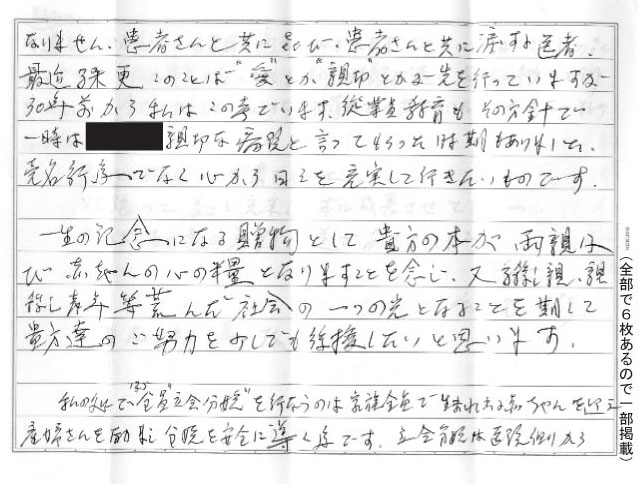 なりません。患者さんと共に喜び、患者さんと共に涙する医者、
最近 今更 このことば"愛"とか"親切"とかが先を行っていますが
30年前から私はこの考でいます。従業員教育も その方針で
一時は 親切な病院と言ってもらった時期もありました。
売名行為でなく心から日々を充実して行きたいものです。
一生の記念になる贈物として 貴方の本が 両親及
び 赤ちゃんの心の糧となりますことを念じ、又 親
等荒んだ社会の一つの光となることを期して
貴方達のご努力を少しでも後援したいと思います。
私の で"ほぼ全員立会分娩"を行なうのは家族全員で生まれる赤ちゃんを迎え
産婦さんを励まし 分娩を安全に導く為です。立会分娩は医院側から
(全部で6枚あるので一部掲載)